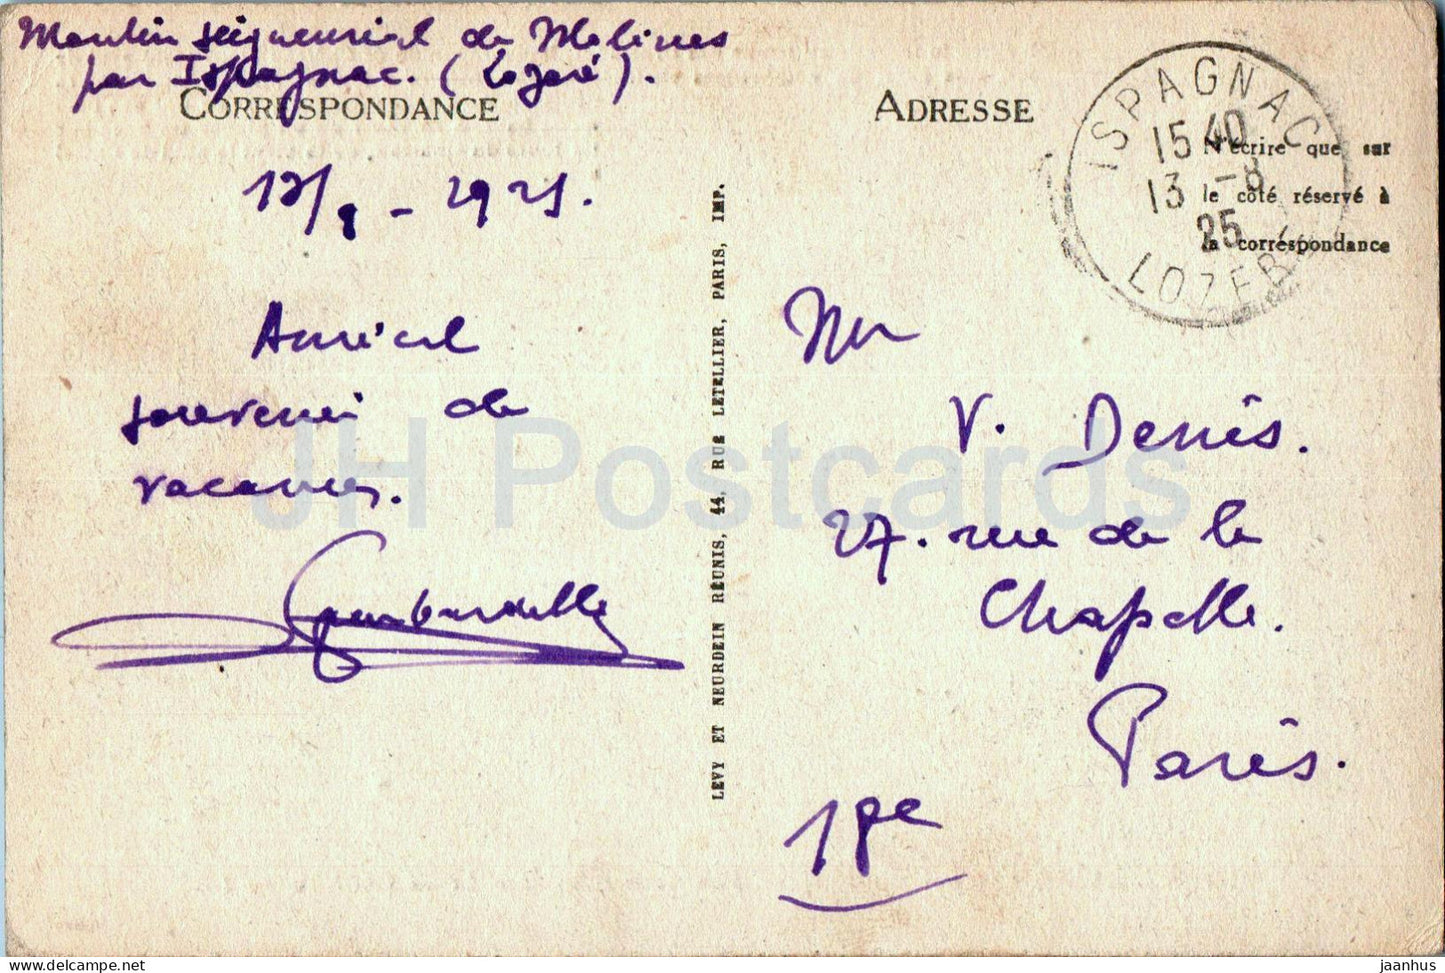 Moulin seigneurial de Molines
par Ispagnac. (Lozère).
CORRESPONDANCE
12/8 - 1925.
Amical
souvenir de
vacances.
LEVY ET NEURDEIN RÉUNIS, 44, RUE LETELLIER, PARIS, IMP.
ADRESSE
N'écrire que sur
le côté réservé à
la correspondance
ISPAGNAC
15 40
13 -8
25
LOZERE
Mr
V. Denis.
27. rue de la
Chapelle.
Paris.
JH Postcards
www.delcampe.net
jaanhus